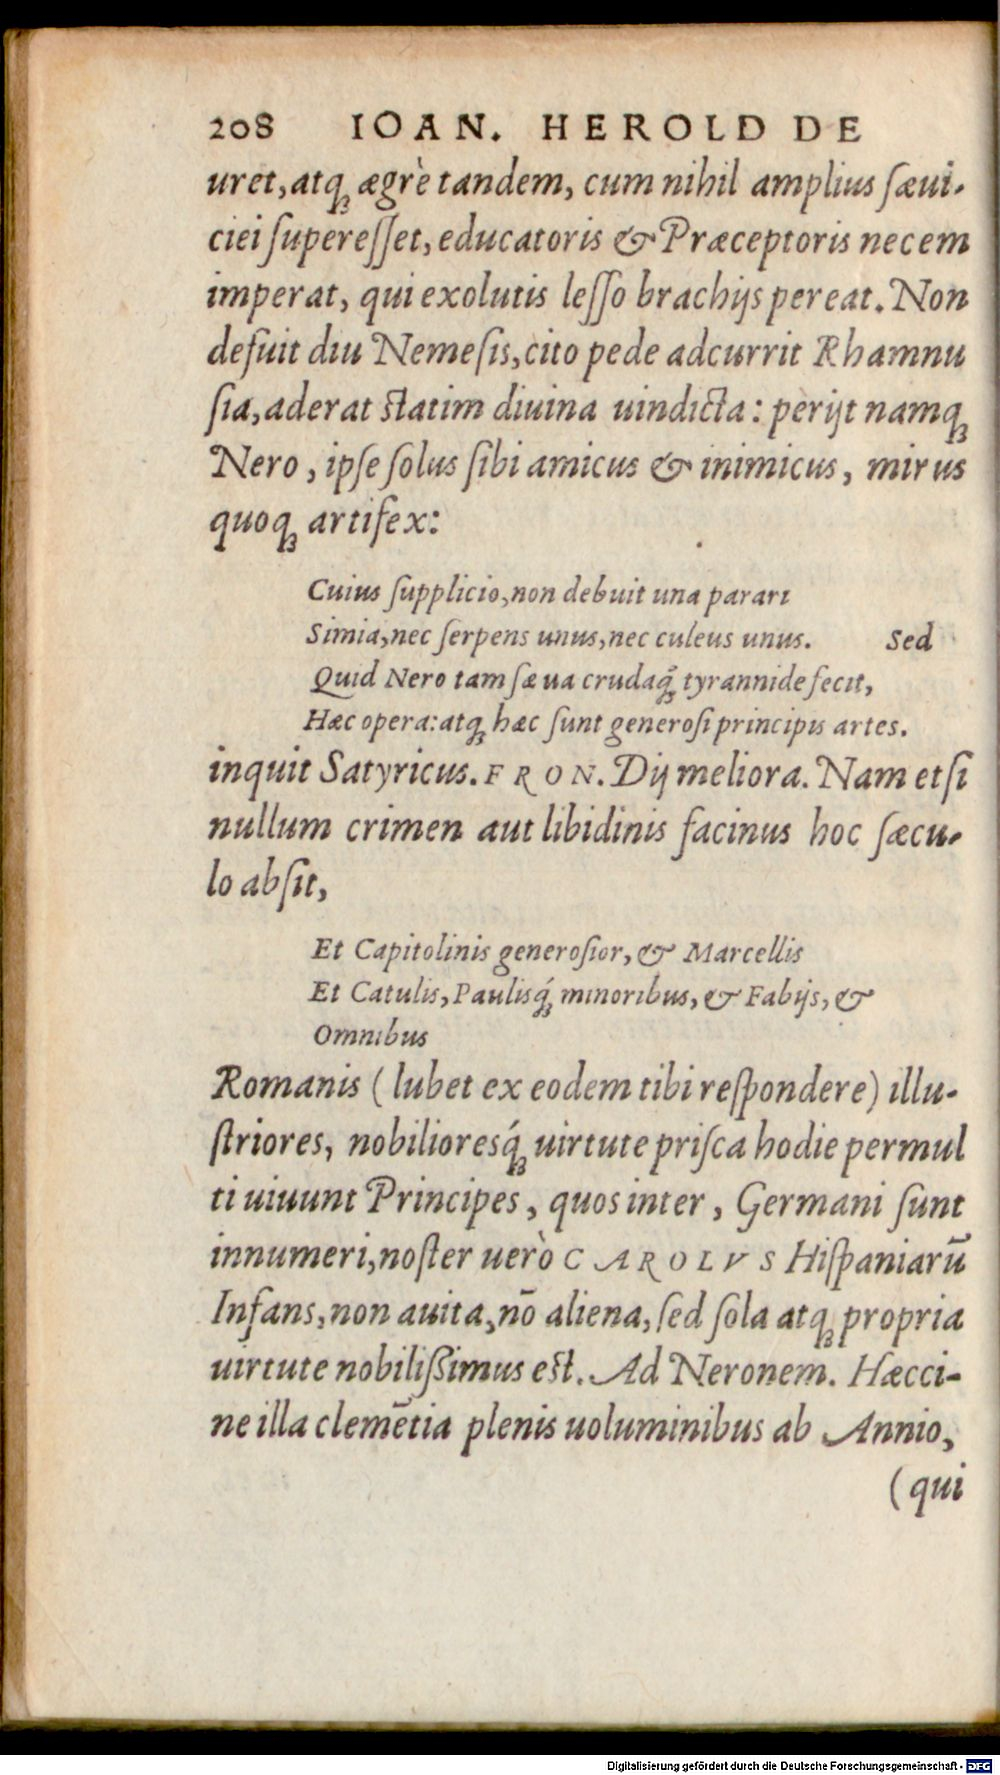 208 IOAN. HEROLD DE
uret, atq́ꝫ ægrè tandem, cum nihil amplius ſæui-
ciei ſupereſſet, educatoris & Præceptoris necem
imperat, qui exolutis leſſo brachijs pereat. Non
defuit diu Nemeſis, cito pede adcurrit Rhamnu
ſia, aderat ſtatim diuina uindicta: perijt namqꝫ
Nero, ipſe ſolus ſibi amicus & inimicus, mirus
quoqꝫ artifex:
Cuius ſupplicio, non debuit una parari
Simia, nec ſerpens unus, nec culeus unus. Sed
Quid Nero tam ſæua crudaq́ꝫ tyrannide fecit,
Hæc opera: atqꝫ hæc ſunt generoſi principis artes.
inquit Satyricus. FRON. Dij meliora. Nam etſi
nullum crimen aut libidinis facinus hoc ſæcu-
lo abſit,
Et Capitolinis generoſior, & Marcellis
Et Catulis, Paulisq́ꝫ minoribus, & Fabijs, &
Omnibus
Romanis (lubet ex eodem tibi reſpondere) illu-
ſtriores, nobilioresq́ꝫ uirtute priſca hodie permul
ti uiuunt Principes, quos inter, Germani ſunt
innumeri, noſter uerò CAROLVS Hiſpaniarū
Infans, non auita, nō aliena, ſed ſola atqꝫ propria
uirtute nobilißimus eſt. Ad Neronem. Hæcci-
ne illa clemētia plenis uoluminibus ab Annio,
(qui
Digitalisierung gefördert durch die Deutsche Forschungsgemeinschaft - DFG